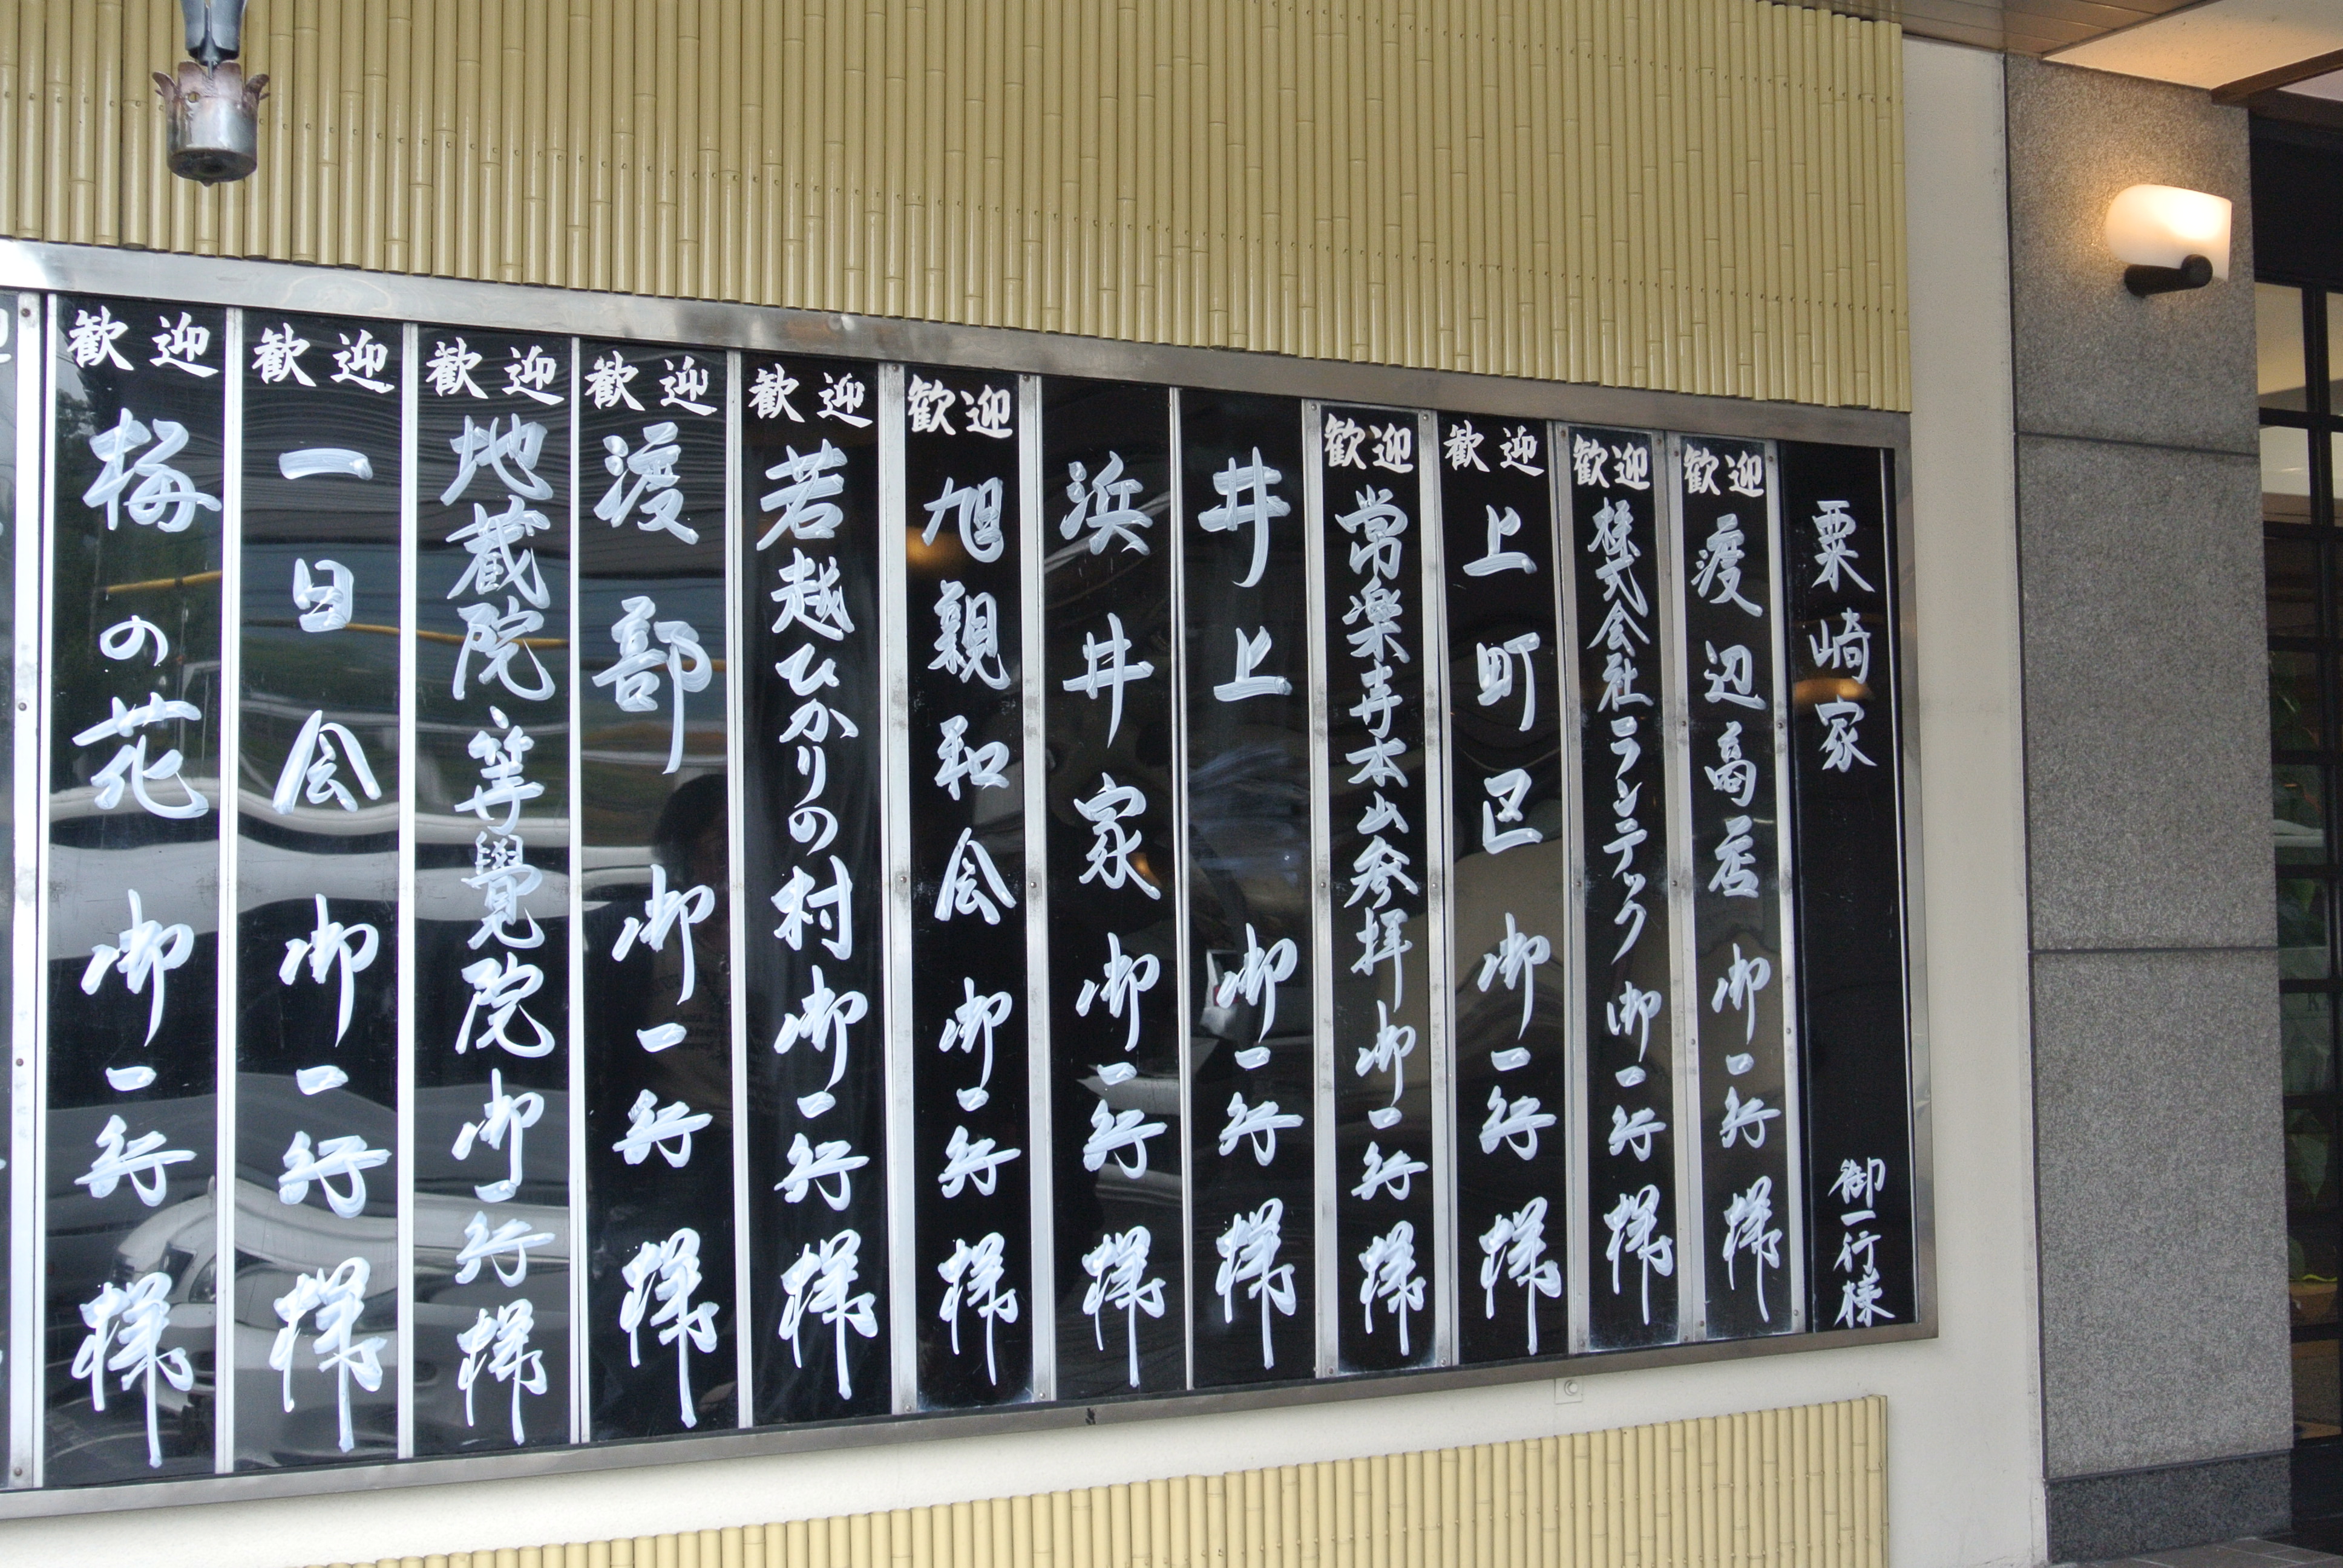 粟崎家 御一行様
歓迎 渡辺商店 御一行様
歓迎 株式会社ランテック 御一行様
歓迎 上町区 御一行様
歓迎 常楽寺本山参拝 御一行様
井上 御一行様
浜井家 御一行様
歓迎 旭親和会 御一行様
歓迎 若越ひかりの村 御一行様
歓迎 渡部 御一行様
歓迎 地蔵院、等覺院 御一行様
歓迎 一日会 御一行様
歓迎 梅の花 御一行様
迎